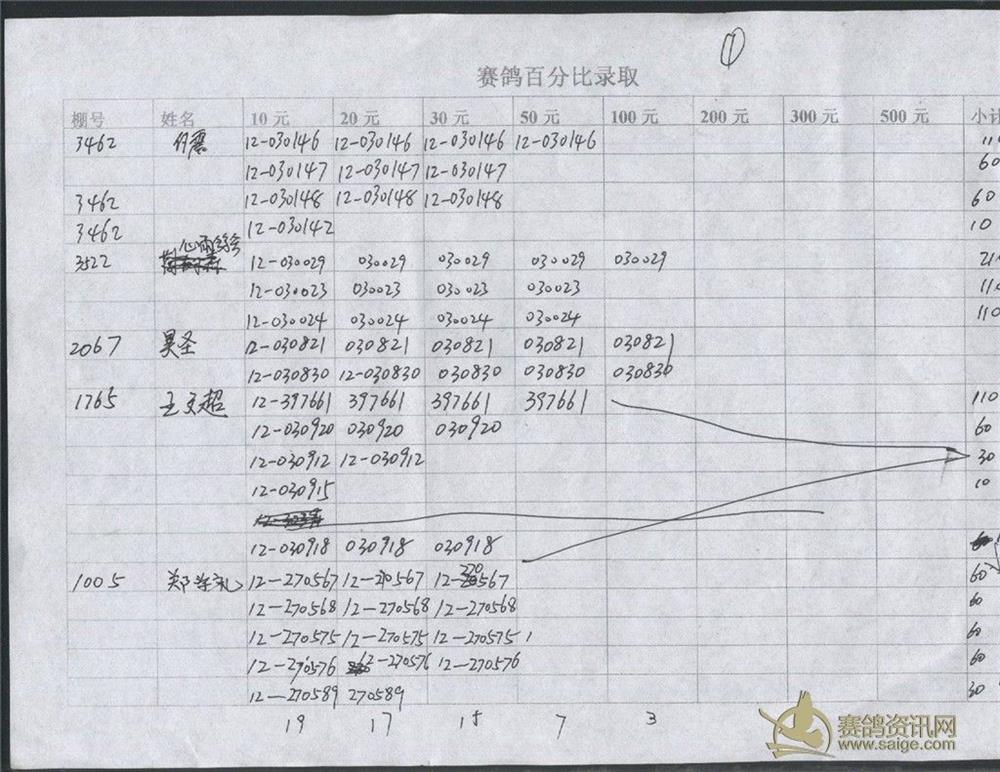 ①
赛鸽百分比录取
棚号 姓名 10 元 20 元 30 元 50 元 100 元 200 元 300 元 500 元 小计
3462 12-030146 12-030146 12-030146 12-030146 11
12-030147 12-030147 12-030147 60
3462 12-030148 12-030148 12-030148 60
3462 12-030142 10
3522 12-030029 030029 030029 030029 030029 21
12-030023 030023 030023 030023 11
12-030024 030024 030024 030024 110
2067 昊圣 12-030821 030821 030821 030821 030821
12-030830 12-030830 030830 030830 030830
1765 王文超 12-397661 397661 397661 397661 110
12-030920 030920 030920 60
12-030912 12-030912 30
12-030915 10
12-030918 030918 030918
1005 12-270567 12-270567 12-270567 60
12-270568 12-270568 12-270568 60
12-270575 12-270575 12-270575 60
12-270576 12-270576 12-270576 60
12-270589 270589 30
19 17 15 7 3
赛鸽资讯网
www.saige.com